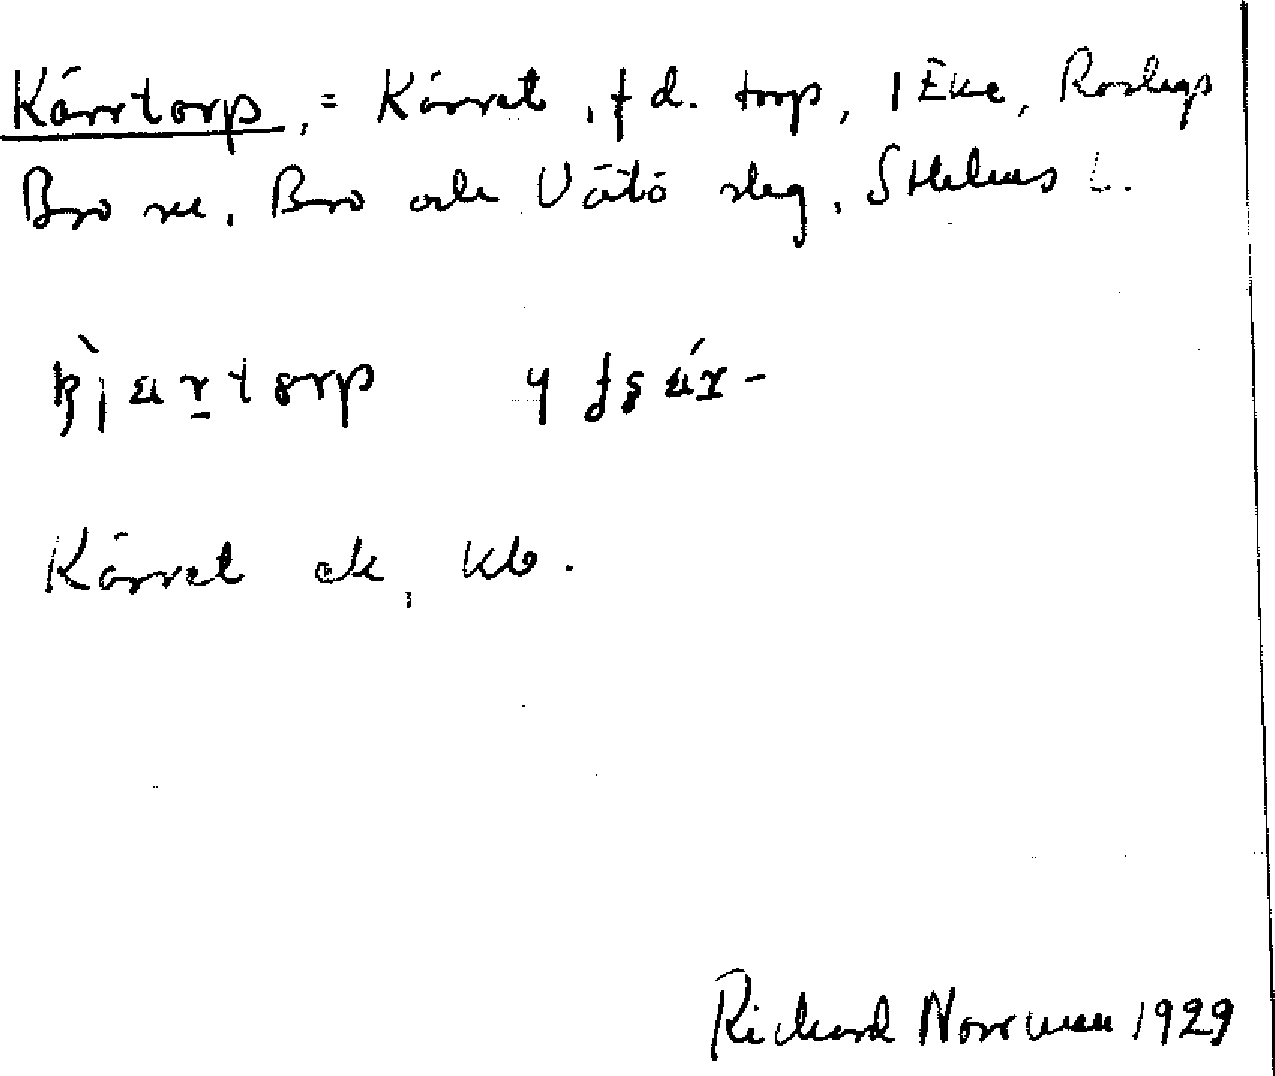 Kärrtorp, = Kärret, f d. torp, i Eke, Roslags
Bro sn, Bro och Vätö skg, Sthlms L.
Kärret ek, kb.
Richard Norrman 1929